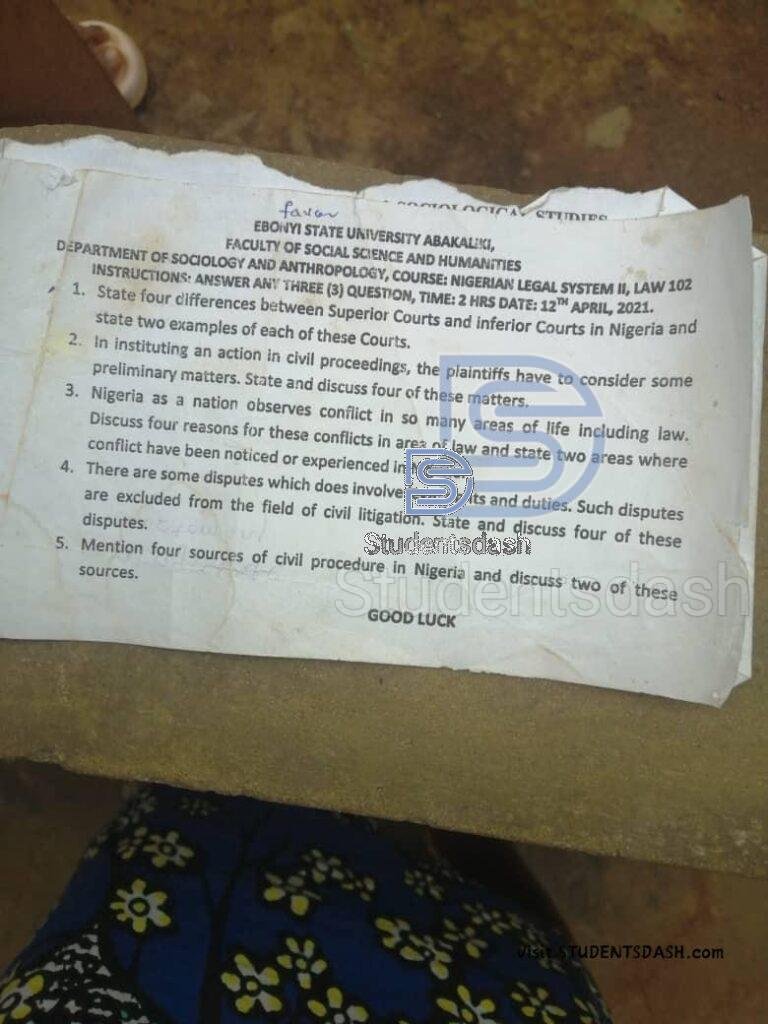 SOCIOLOGICAL STUDIES
favor
EBONYI STATE UNIVERSITY ABAKALIKI,
FACULTY OF SOCIAL SCIENCE AND HUMANITIES
DEPARTMENT OF SOCIOLOGY AND ANTHROPOLOGY, COURSE: NIGERIAN LEGAL SYSTEM II, LAW 102
INSTRUCTIONS: ANSWER ANY THREE (3) QUESTION, TIME: 2 HRS DATE: 12TH APRIL, 2021.
1. State four differences between Superior Courts and inferior Courts in Nigeria and
state two examples of each of these Courts.
2. In instituting an action in civil proceedings, the plaintiffs have to consider some
preliminary matters. State and discuss four of these matters.
3. Nigeria as a nation observes conflict in so many areas of life including law.
Discuss four reasons for these conflicts in area of law and state two areas where
conflict have been noticed or experienced in
4. There are some disputes which does involve and duties. Such disputes
are excluded from the field of civil litigation. State and discuss four of these
disputes.
5. Mention four sources of civil procedure in Nigeria and discuss two of these
sources.
GOOD LUCK
Studentsdash
Studentsdash
Visit STUDENTSDASH.com